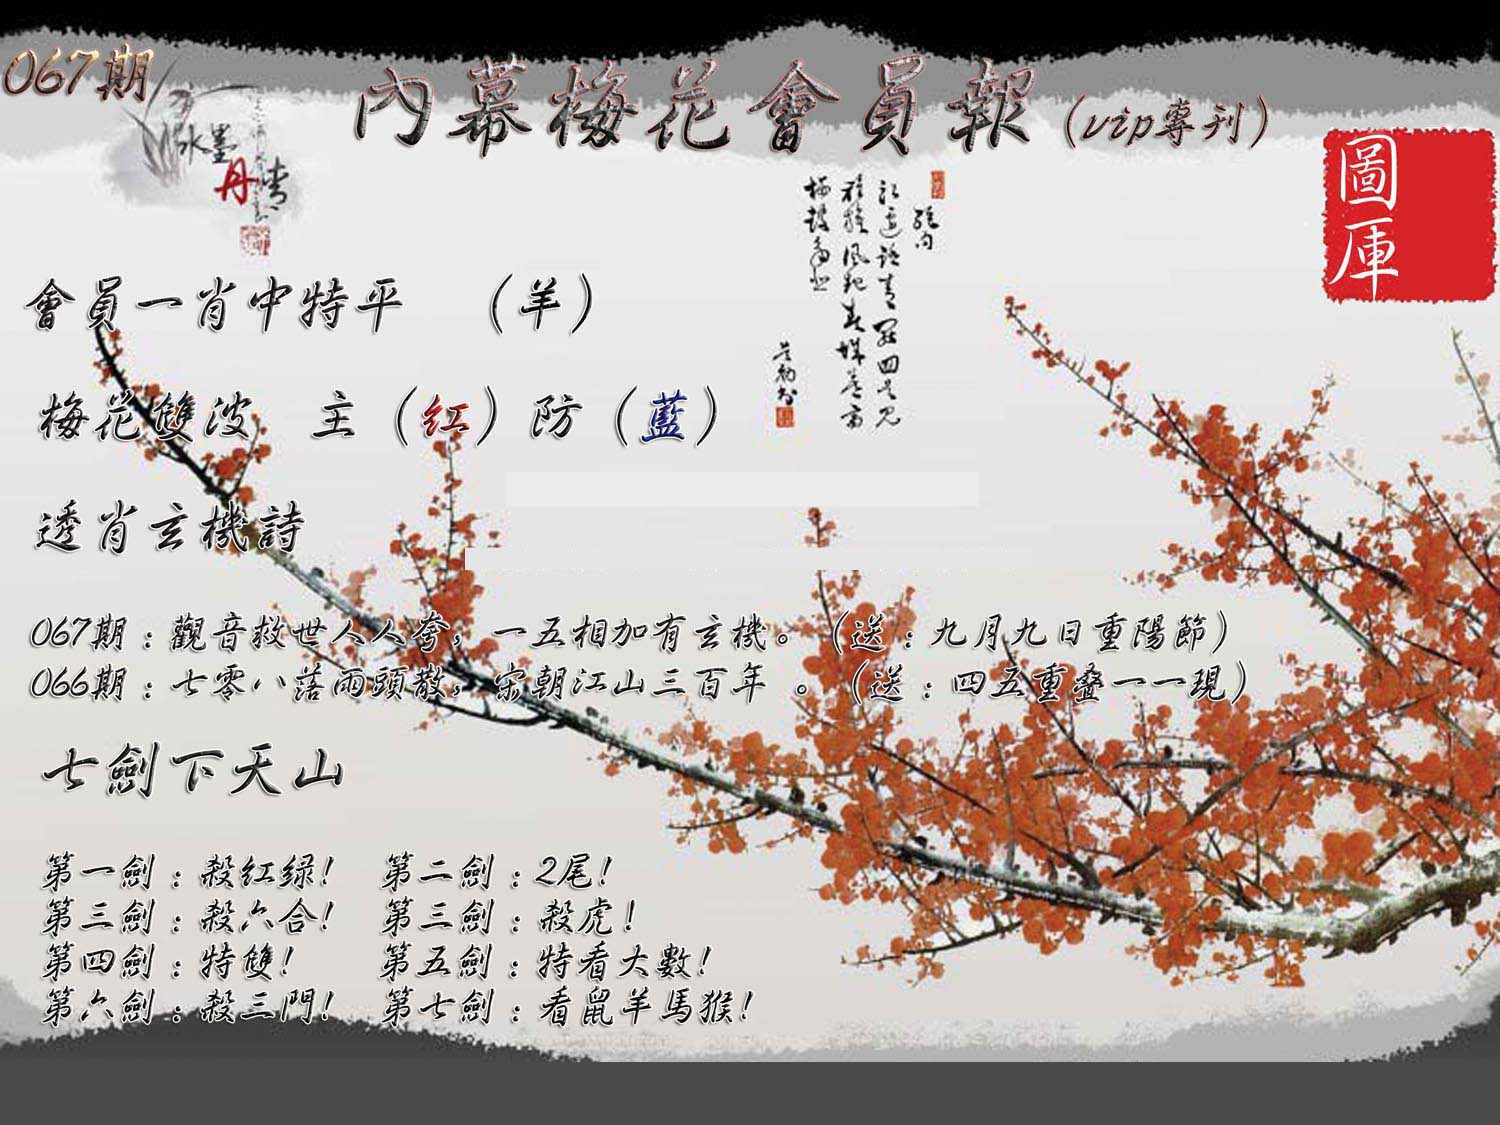 067期
內幕梅花會員報（vip專刊）
水墨
丹青
圖庫
會員一肖中特平 （羊）
梅花雙波 主（紅）防（藍）
透肖玄機詩
067期：觀音救世人人夸，一五相加有玄機。（送：九月九日重陽節）
066期：七零八落雨頭散，宗朝江山三百年 。（送：四五重叠一一現）
七劍下天山
第一劍：殺紅绿! 第二劍：2尾!
第三劍：殺六合! 第三劍：殺虎!
第四劍：特雙! 第五劍：特看大數!
第六劍：殺三門! 第七劍：看鼠羊馬猴!